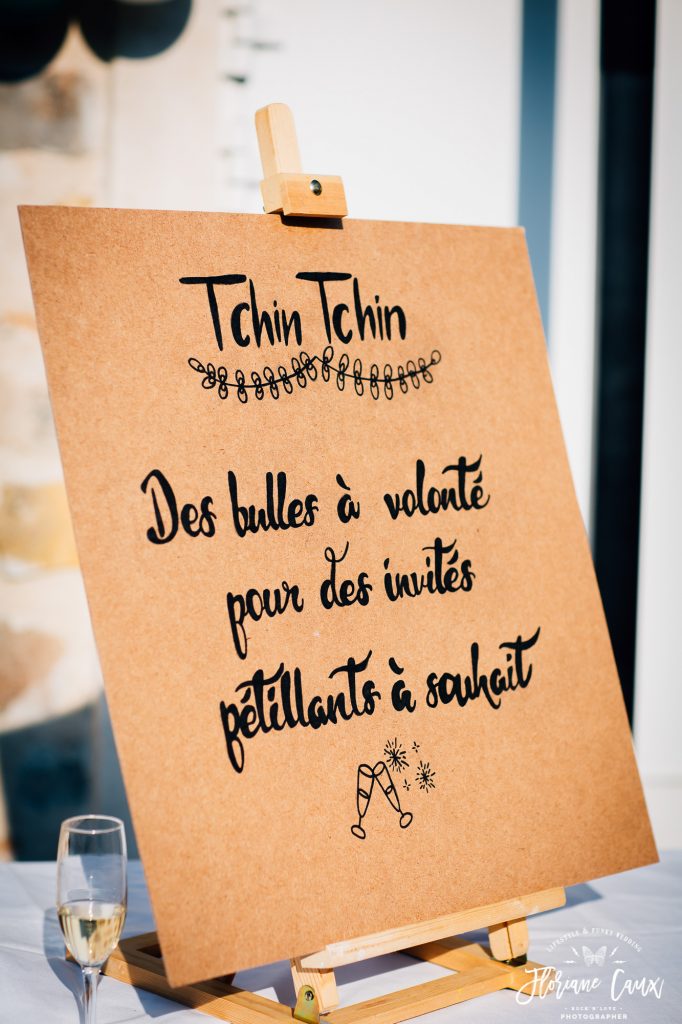 Tchin Tchin
Des bulles à volonté
pour des invités
pétillants à souhait
LIFESTYLE & FUNKY WEDDING
Floriane Caux
ROCK'N'LOVE
PHOTOGRAPHER